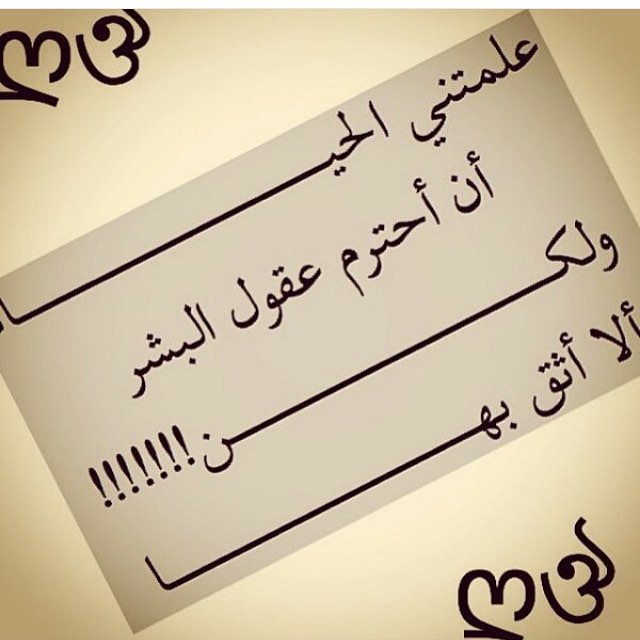 علمتني الحيـــــــــــــاة
أن أحترم عقول البشر
ولكـــــــــــــــن!!!!!!!
ألا أثق بهـــــــــــــــا